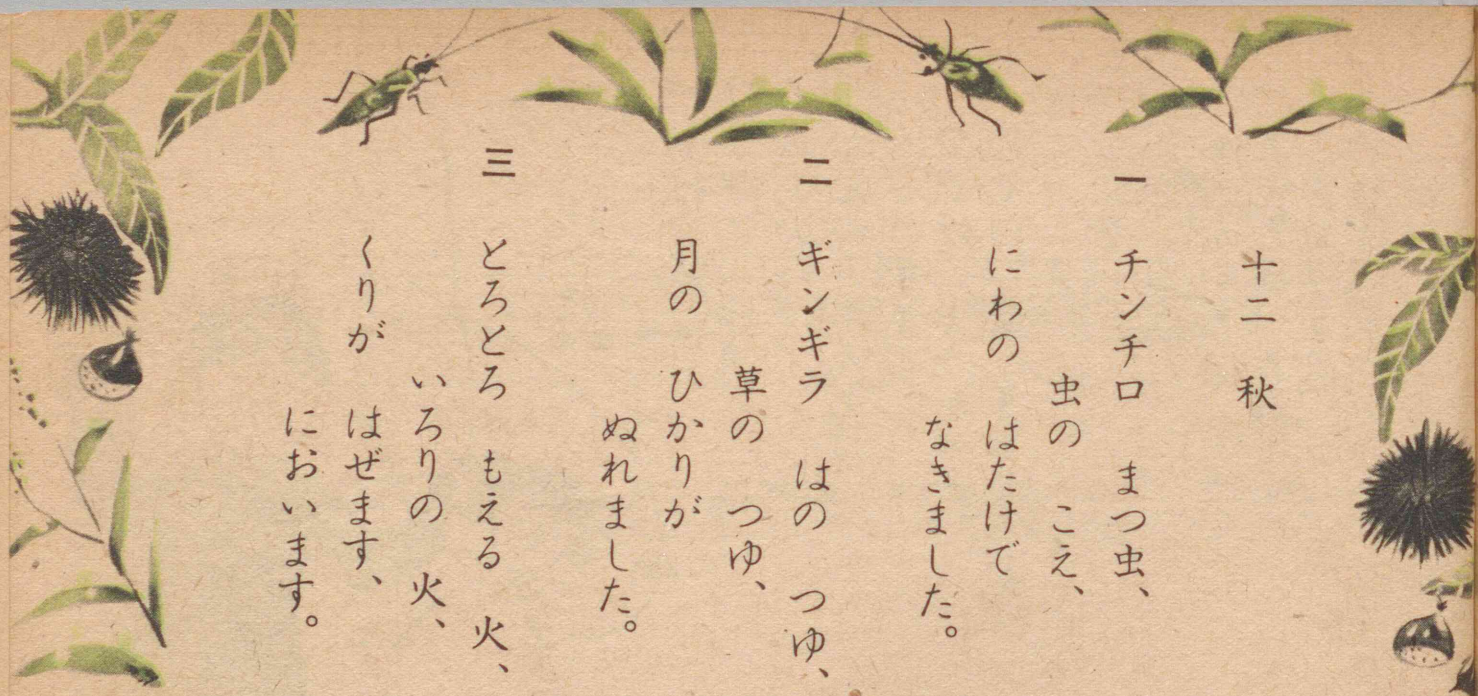 十二 秋
一 チンチロ まつ虫、
虫の こえ、
にわの はたけで
なきました。
二 ギンギラ はの つゆ、
草の つゆ、
月の ひかりが
ぬれました。
三 とろとろ もえる 火、
いろりの 火、
くりが はぜます、
においます。